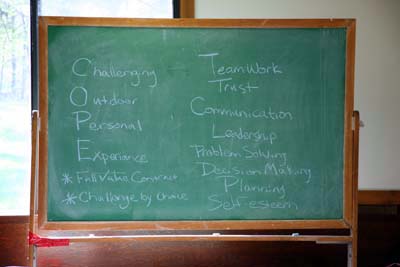 Challenging
Outdoor
Personal
Experience
* Full Value Contract
* Challenge by Choice
TeamWork
Trust
Communication
Leadership
Problem Solving
Decision Making
Planning
Self-esteem